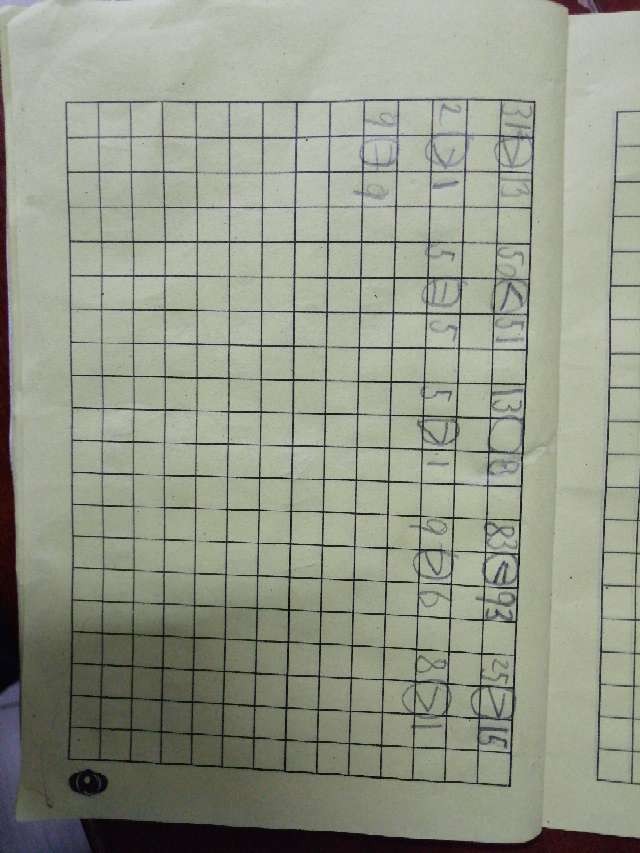 31>13 50<51 13○18 83<93 25>15
2>1 5=5 5>1 9>6 8>1
9=9